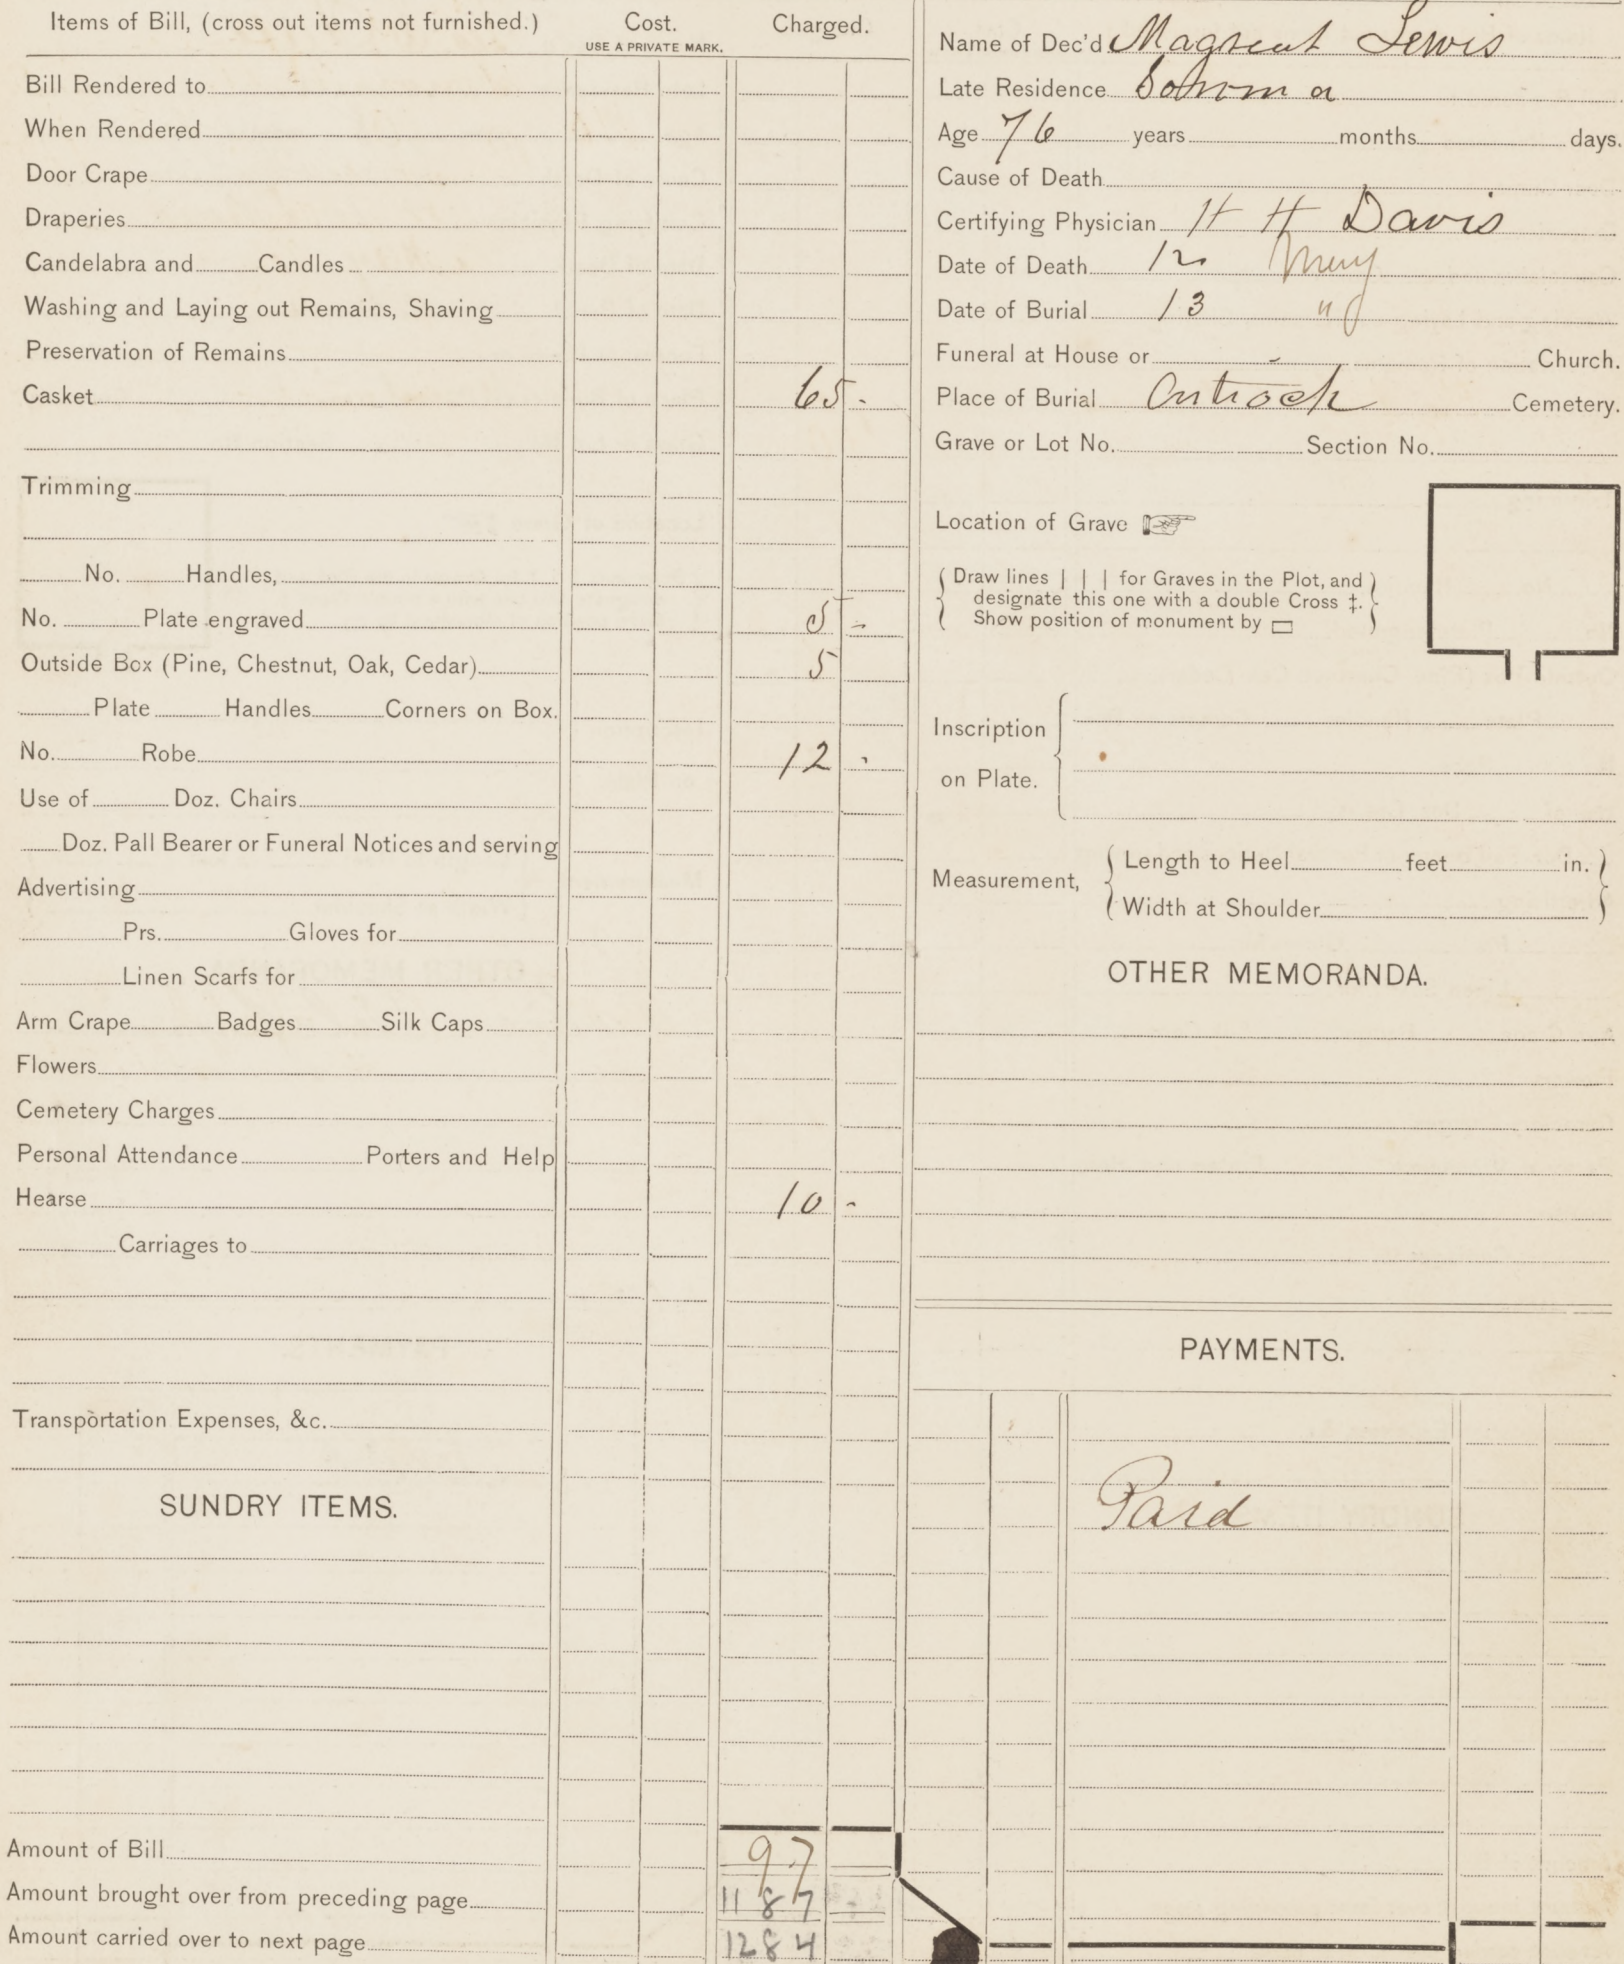 Items of Bill, (cross out items not furnished.) Cost. Charged.
USE A PRIVATE MARK.
Bill Rendered to
When Rendered
Door Crape
Draperies
Candelabra and Candles
Washing and Laying out Remains, Shaving
Preservation of Remains
Casket 65 -
Trimming
No. Handles,
No. Plate engraved 5 -
Outside Box (Pine, Chestnut, Oak, Cedar) 5
Plate Handles Corners on Box.
No. Robe 12 -
Use of Doz. Chairs
Doz. Pall Bearer or Funeral Notices and serving
Advertising
Prs. Gloves for
Linen Scarfs for
Arm Crape Badges Silk Caps
Flowers
Cemetery Charges
Personal Attendance Porters and Help
Hearse 10 -
Carriages to
Transportation Expenses, &c.
SUNDRY ITEMS.
Amount of Bill 97
Amount brought over from preceding page 1187 -
Amount carried over to next page 1284
Name of Dec'd Lewis
Late Residence
Age 76 years months days.
Cause of Death
Certifying Physician H H Davis
Date of Death 12
Date of Burial 13 "
Funeral at House or - Church.
Place of Burial Antioch Cemetery.
Grave or Lot No. Section No.
Location of Grave
Draw lines | | | for Graves in the Plot, and
designate this one with a double Cross ‡.
Show position of monument by
Inscription
on Plate.
Measurement, Length to Heel feet in.
Width at Shoulder
OTHER MEMORANDA.
PAYMENTS.
Paid